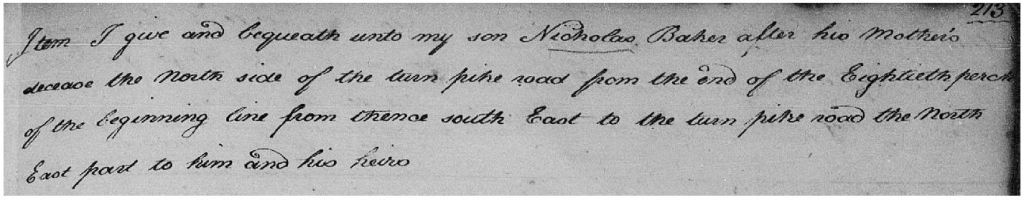 213
Item I give and bequeath unto my son Nicholas Baker after his Mothers
decease the North side of the turn pike road from the end of the Eightieth perch
of the beginning line from thence south East to the turn pike road the North
East part to him and his heirs